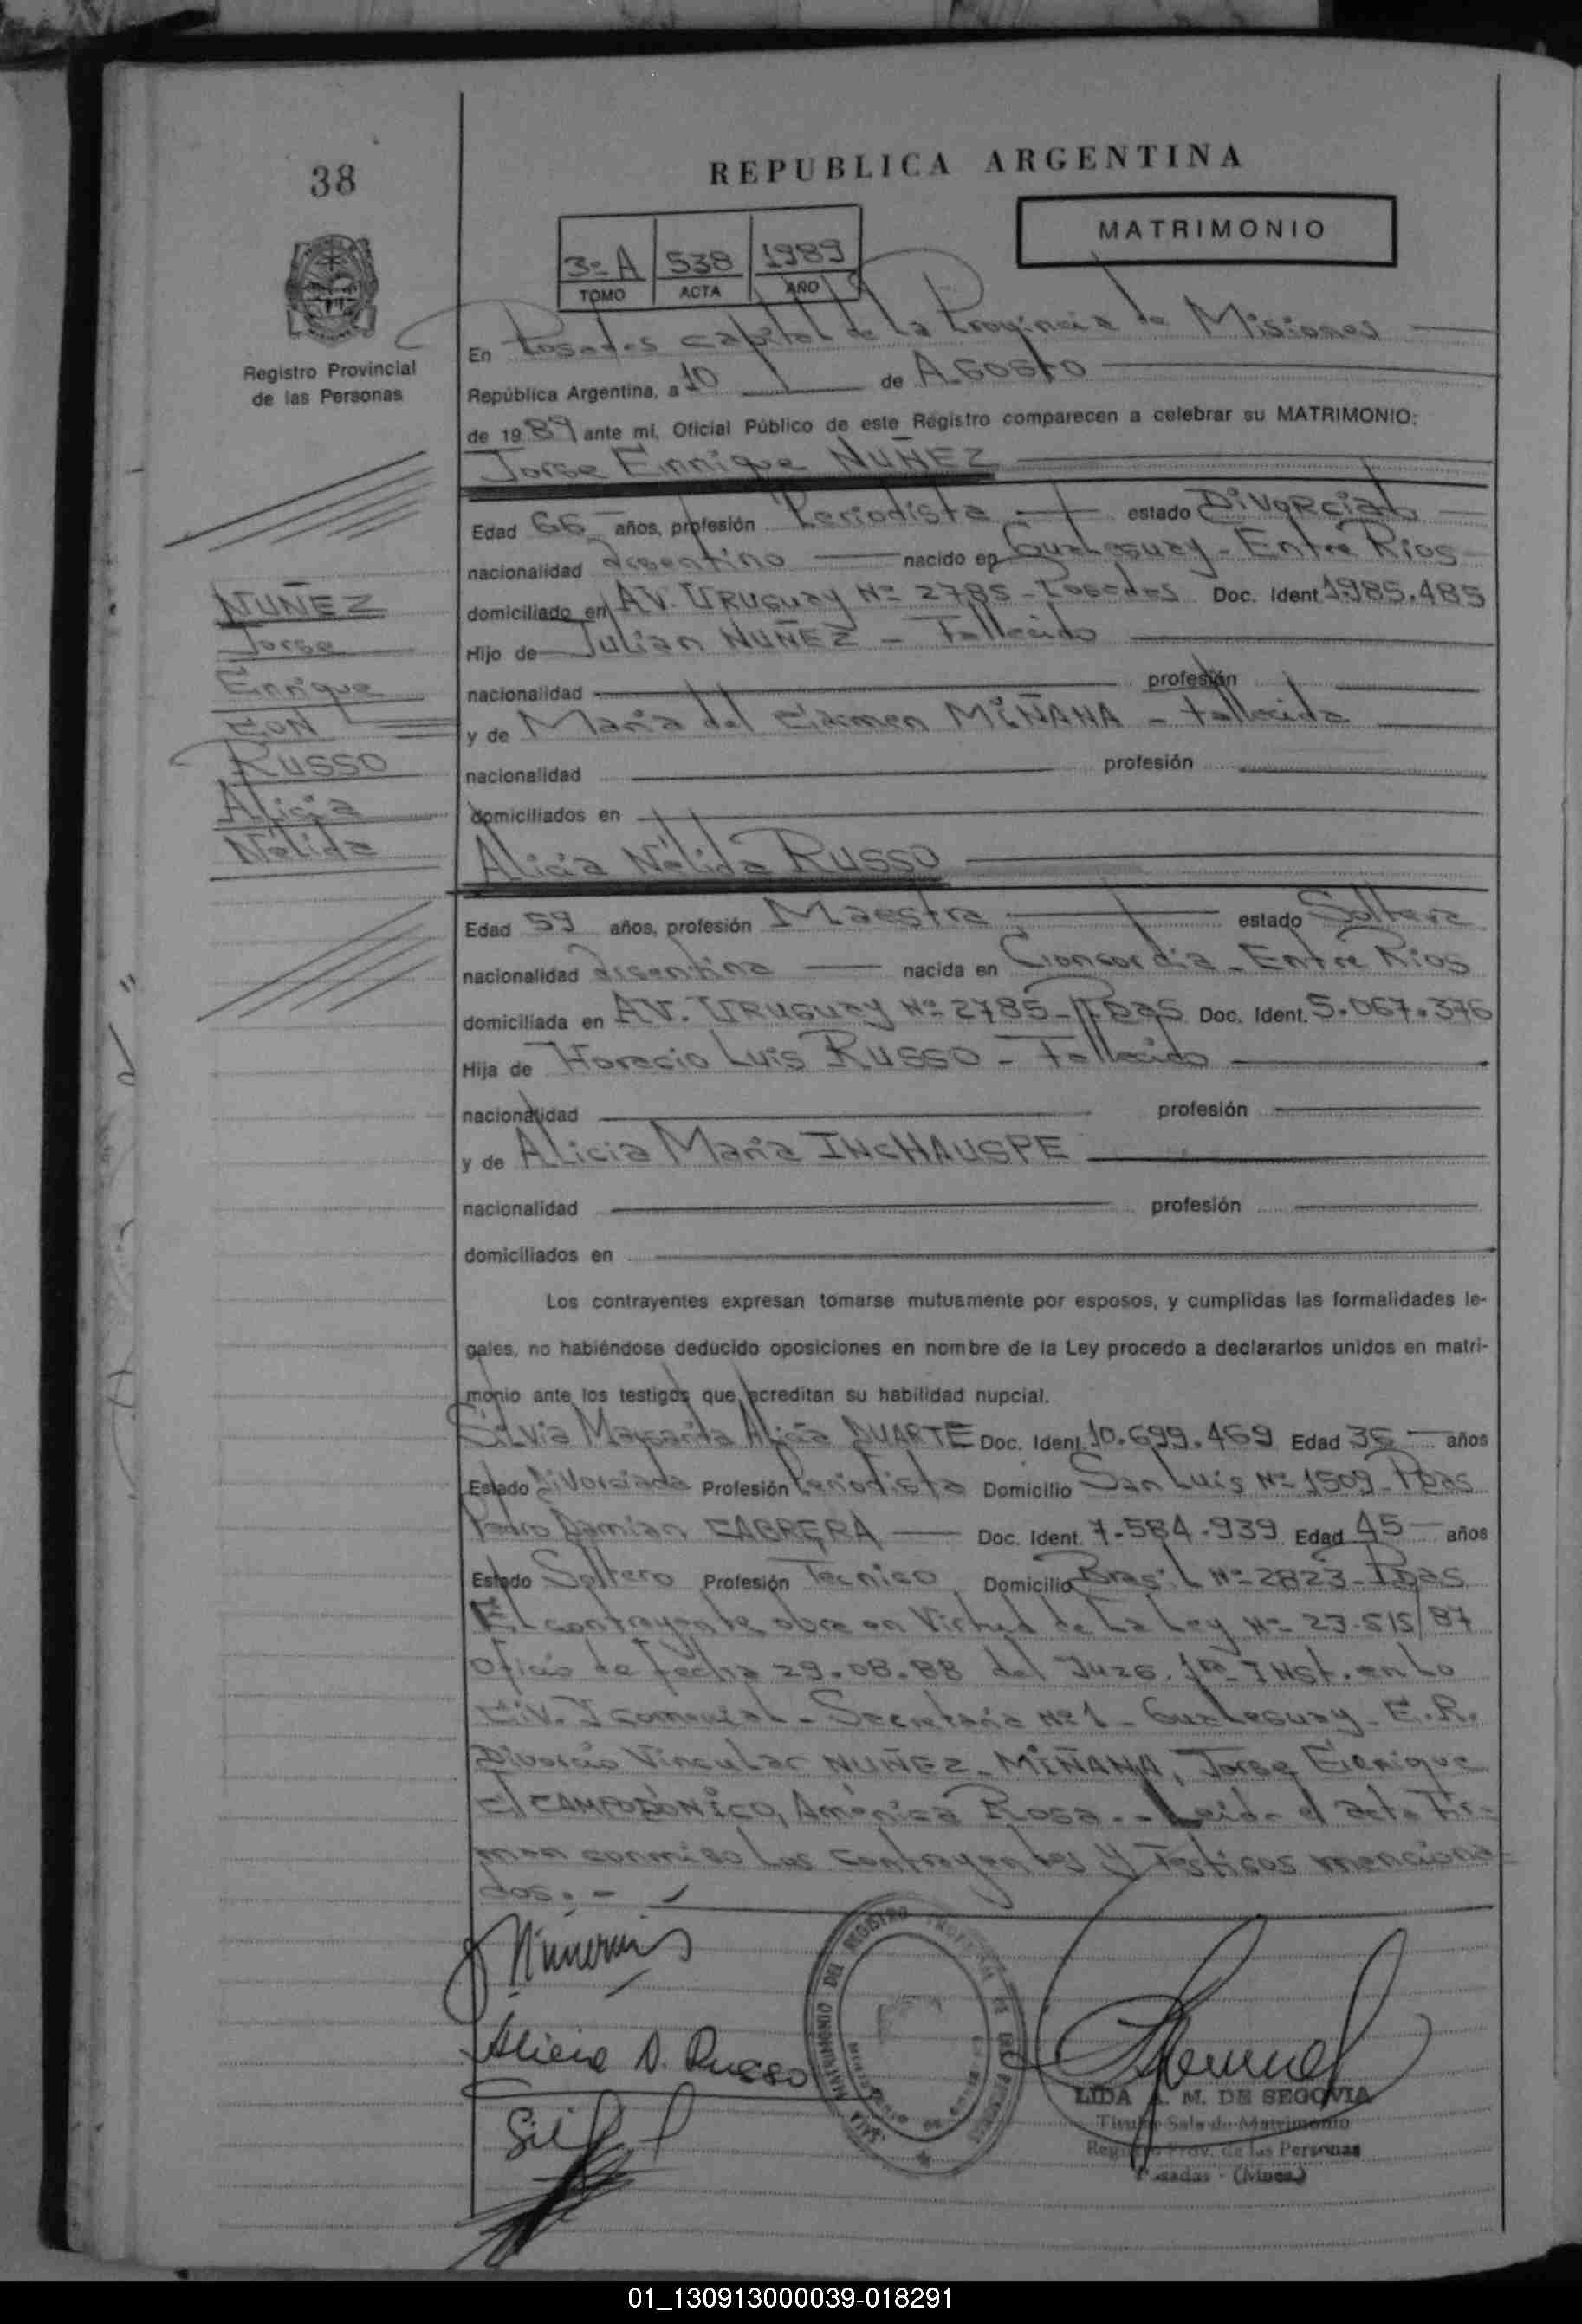 38
REPUBLICA ARGENTINA
MATRIMONIO
3º A 538 1989
TOMO ACTA AÑO
Registro Provincial
de las Personas
En Posadas Capital de La Provincia de Misiones
República Argentina, a 10 de Agosto
de 1989 ante mí, Oficial Público de este Registro comparecen a celebrar su MATRIMONIO:
Jorge Enrique NUÑEZ
Edad 66 años, profesión Periodista estado Divorciado
nacionalidad Argentino nacido en Gualeguay - Entre Rios
domiciliado en AV. URUGUAY Nº 2785 - Posadas Doc. Ident. 1.985.485
Hijo de Julián NUÑEZ - Fallecido
nacionalidad profesión
y de Maria del Carmen MIÑANA - Fallecida
nacionalidad profesión
domiciliados en
NUÑEZ
Jorge
Enrique
CON
RUSSO
Alicia
Nélida
Alicia Nélida RUSSO
Edad 59 años, profesión Maestra estado Soltera
nacionalidad Argentina nacida en Concordia - Entre Rios
domiciliada en AV. URUGUAY Nº 2785 - Pdas Doc. Ident. 5.067.376
Hija de Horacio Luis RUSSO - Fallecido
nacionalidad profesión
y de Alicia Maria INCHAUSPE
nacionalidad profesión
domiciliados en
Los contrayentes expresan tomarse mutuamente por esposos, y cumplidas las formalidades le-
gales, no habiéndose deducido oposiciones en nombre de la Ley procedo a declararlos unidos en matri-
monio ante los testigos que acreditan su habilidad nupcial.
Silvia Margarita Alicia DUARTE Doc. Ident. 10.699.469 Edad 36 años
Estado Divorciada Profesión Periodista Domicilio San Luis Nº 1509 - Pdas
Pedro Damian CABRERA Doc. Ident. 7.584.939 Edad 45 años
Estado Soltero Profesión Tecnico Domicilio Brasil Nº 2823 - Pdas
El contrayente obra en Virtud de La Ley Nº 23.515/87
Oficio de fecha 29.08.88 del Juzg. 1ra INst. en Lo
CiV. Y Comercial - Secretaria Nº 1 - Gualeguay - E.R.
Divorcio Vincular NUÑEZ - MIÑANA, Jorge Enrique
C/ CAMPODÓNICO, América Rosa. - Leída el acta Fir-
man conmigo Los contrayentes Y Testigos menciona-
dos. -
Alicia N. Russo
LIDA M. DE SEGOVIA
Titular Sala de Matrimonio
Registro Prov. de las Personas
Posadas - (Mnes.)
01_130913000039-018291